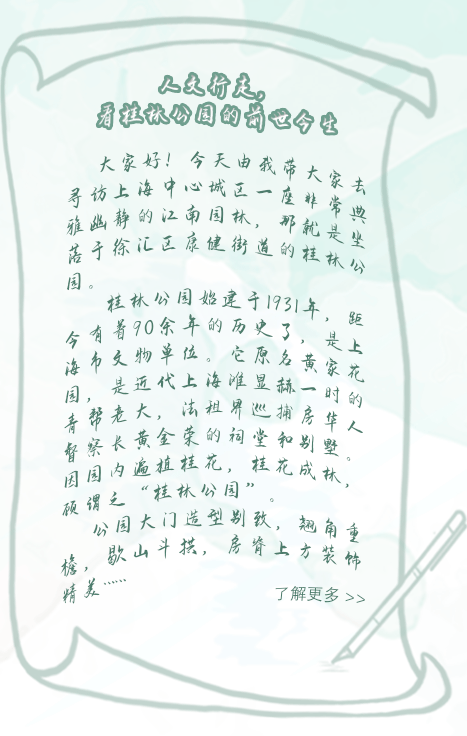 人文行走，
看桂林公园的前世今生
大家好！今天由我带大家去
寻访上海中心城区一座非常典
雅幽静的江南园林，那就是坐
落于徐汇区康健街道的桂林公
园。
桂林公园始建于1931年，距
今有着90余年的历史了，是上
海市文物单位。它原名黄家花
园，是近代上海滩显赫一时的
青帮老大，法租界巡捕房华人
督察长黄金荣的祠堂和别墅。
因园内遍植桂花，桂花成林，
顾谓之“桂林公园”。
公园大门造型别致，翘角重
檐，歇山斗拱，房脊上方装饰
精美……
了解更多 >>